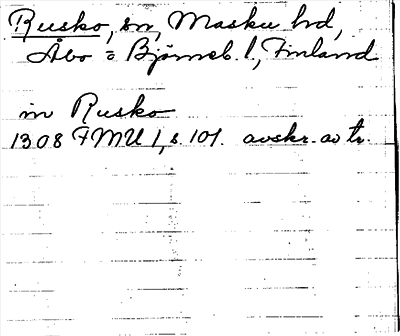 Rusko, sn, Masku hd,
Åbo = Björneb. l, Finland
in Rusko
1308 FMU 1, s. 101. avskr. av tr.